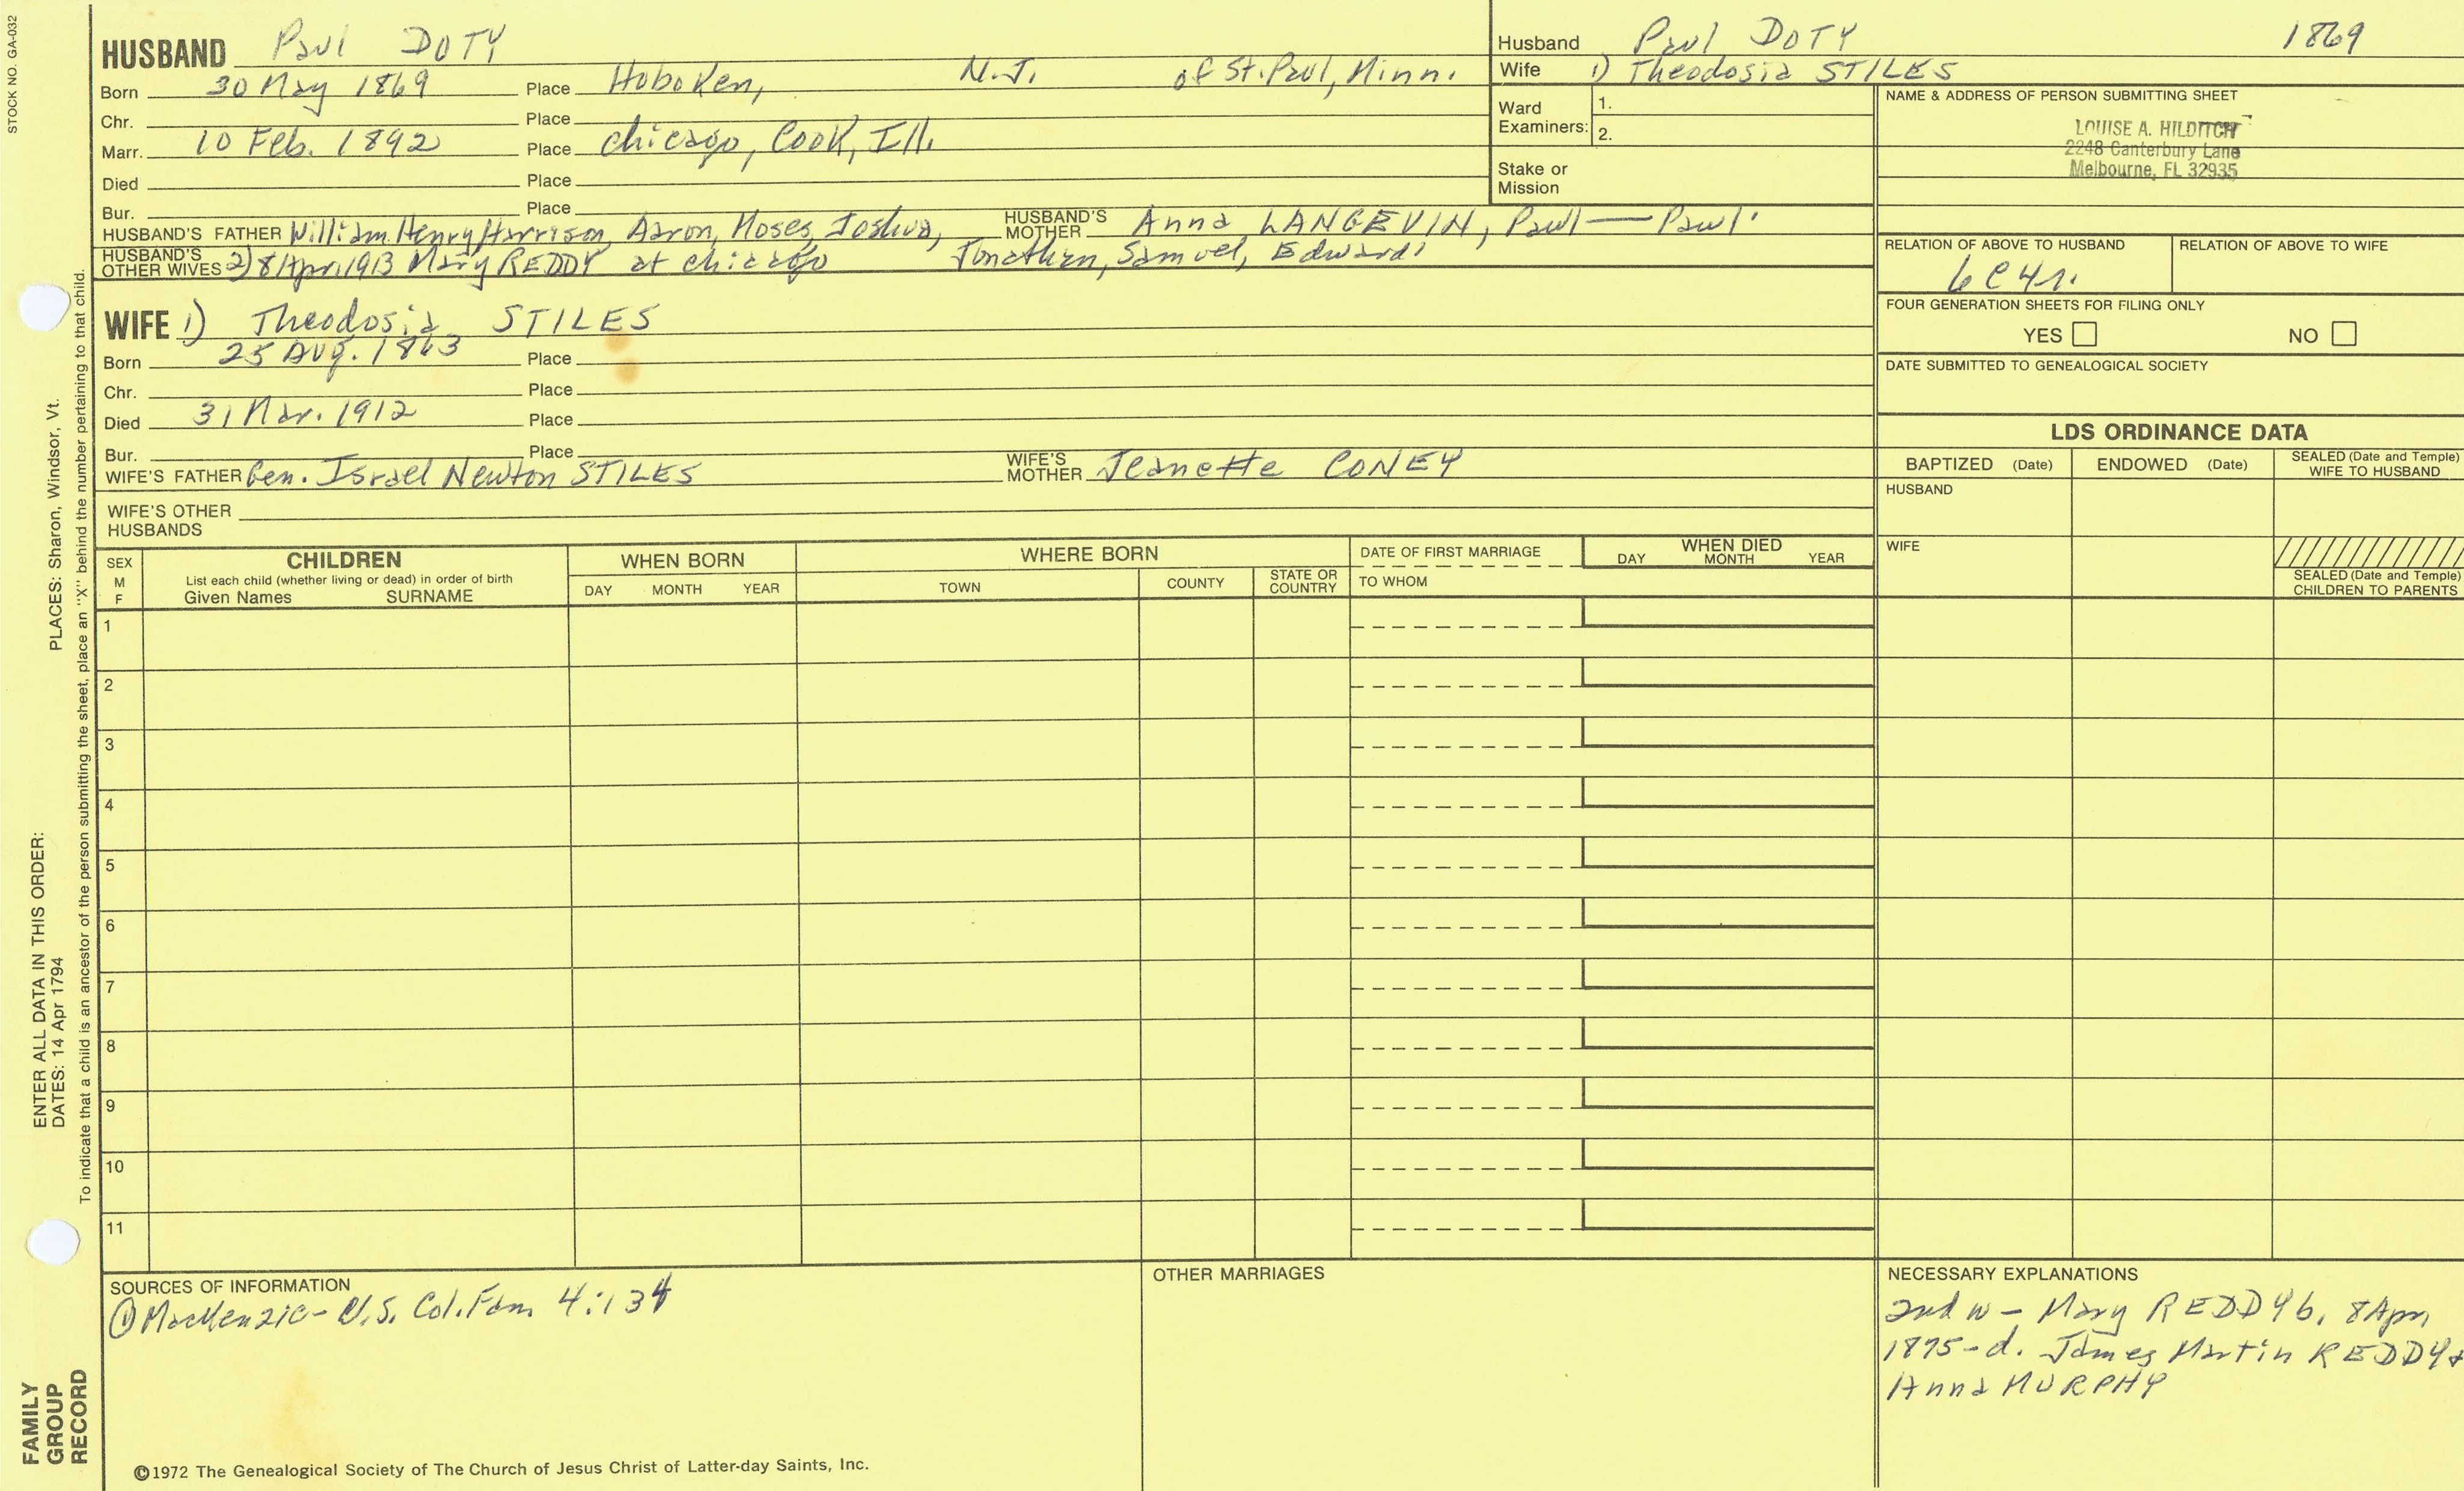 STOCK NO. GA-032
HUSBAND Paul DOTY
Born 30 May 1869 Place Hoboken, N.J. of St. Paul, Minn.
Chr. Place
Marr. 10 Feb. 1892 Place Chicago, Cook, Ill.
Died Place
Bur. Place
HUSBAND'S FATHER William Henry Harrison, Aaron, Moses, Joshua, HUSBAND'S MOTHER Anna LANGEVIN, Paul — Paul'
HUSBAND'S OTHER WIVES 2) 8 Apr 1913 Mary REDDY at Chicago Jonathan, Samuel, Edward'
Husband Paul DOTY 1869
Wife 1) Theodosia STILES
Ward Examiners: 1.
2.
Stake or Mission
NAME & ADDRESS OF PERSON SUBMITTING SHEET
LOUISE A. HILDITCH
2248 Canterbury Lane
Melbourne, FL 32935
RELATION OF ABOVE TO HUSBAND RELATION OF ABOVE TO WIFE
6C4r.
FOUR GENERATION SHEETS FOR FILING ONLY
YES NO
DATE SUBMITTED TO GENEALOGICAL SOCIETY
WIFE 1) Theodosia STILES
Born 25 Aug. 1863 Place
Chr. Place
Died 31 Mar. 1912 Place
Bur. Place
WIFE'S FATHER Gen. Israel Newton STILES WIFE'S MOTHER Jeanette CONEY
WIFE'S OTHER HUSBANDS
LDS ORDINANCE DATA
BAPTIZED (Date) ENDOWED (Date) SEALED (Date and Temple) WIFE TO HUSBAND
HUSBAND
WIFE
SEALED (Date and Temple) CHILDREN TO PARENTS
SEX M F CHILDREN WHEN BORN WHERE BORN DATE OF FIRST MARRIAGE WHEN DIED
List each child (whether living or dead) in order of birth
Given Names SURNAME DAY MONTH YEAR TOWN COUNTY STATE OR COUNTRY TO WHOM DAY MONTH YEAR
1
2
3
4
5
6
7
8
9
10
11
SOURCES OF INFORMATION
① MacKenzie - U.S. Col. Fam. 4:134
OTHER MARRIAGES
NECESSARY EXPLANATIONS
2nd w - Mary REDDY b. 8 Apr,
1875 - d. James Martin REDDY +
Anna MURPHY
©1972 The Genealogical Society of The Church of Jesus Christ of Latter-day Saints, Inc.
FAMILY GROUP RECORD
ENTER ALL DATA IN THIS ORDER:
DATES: 14 Apr 1794
PLACES: Sharon, Windsor, Vt.
To indicate that a child is an ancestor of the person submitting the sheet, place an "X" behind the number pertaining to that child.